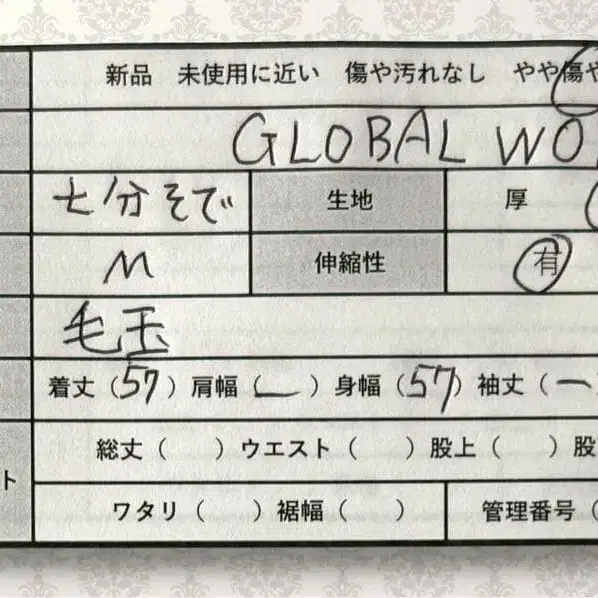 新品 未使用に近い 傷や汚れなし やや傷や
GLOBAL WO
七分そで 生地 厚
M 伸縮性 有
毛玉
着丈（57）肩幅（ー）身幅（57）袖丈（ー
総丈（ ）ウエスト（ ）股上（ ）股
ト
ワタリ（ ）裾幅（ ） 管理番号（